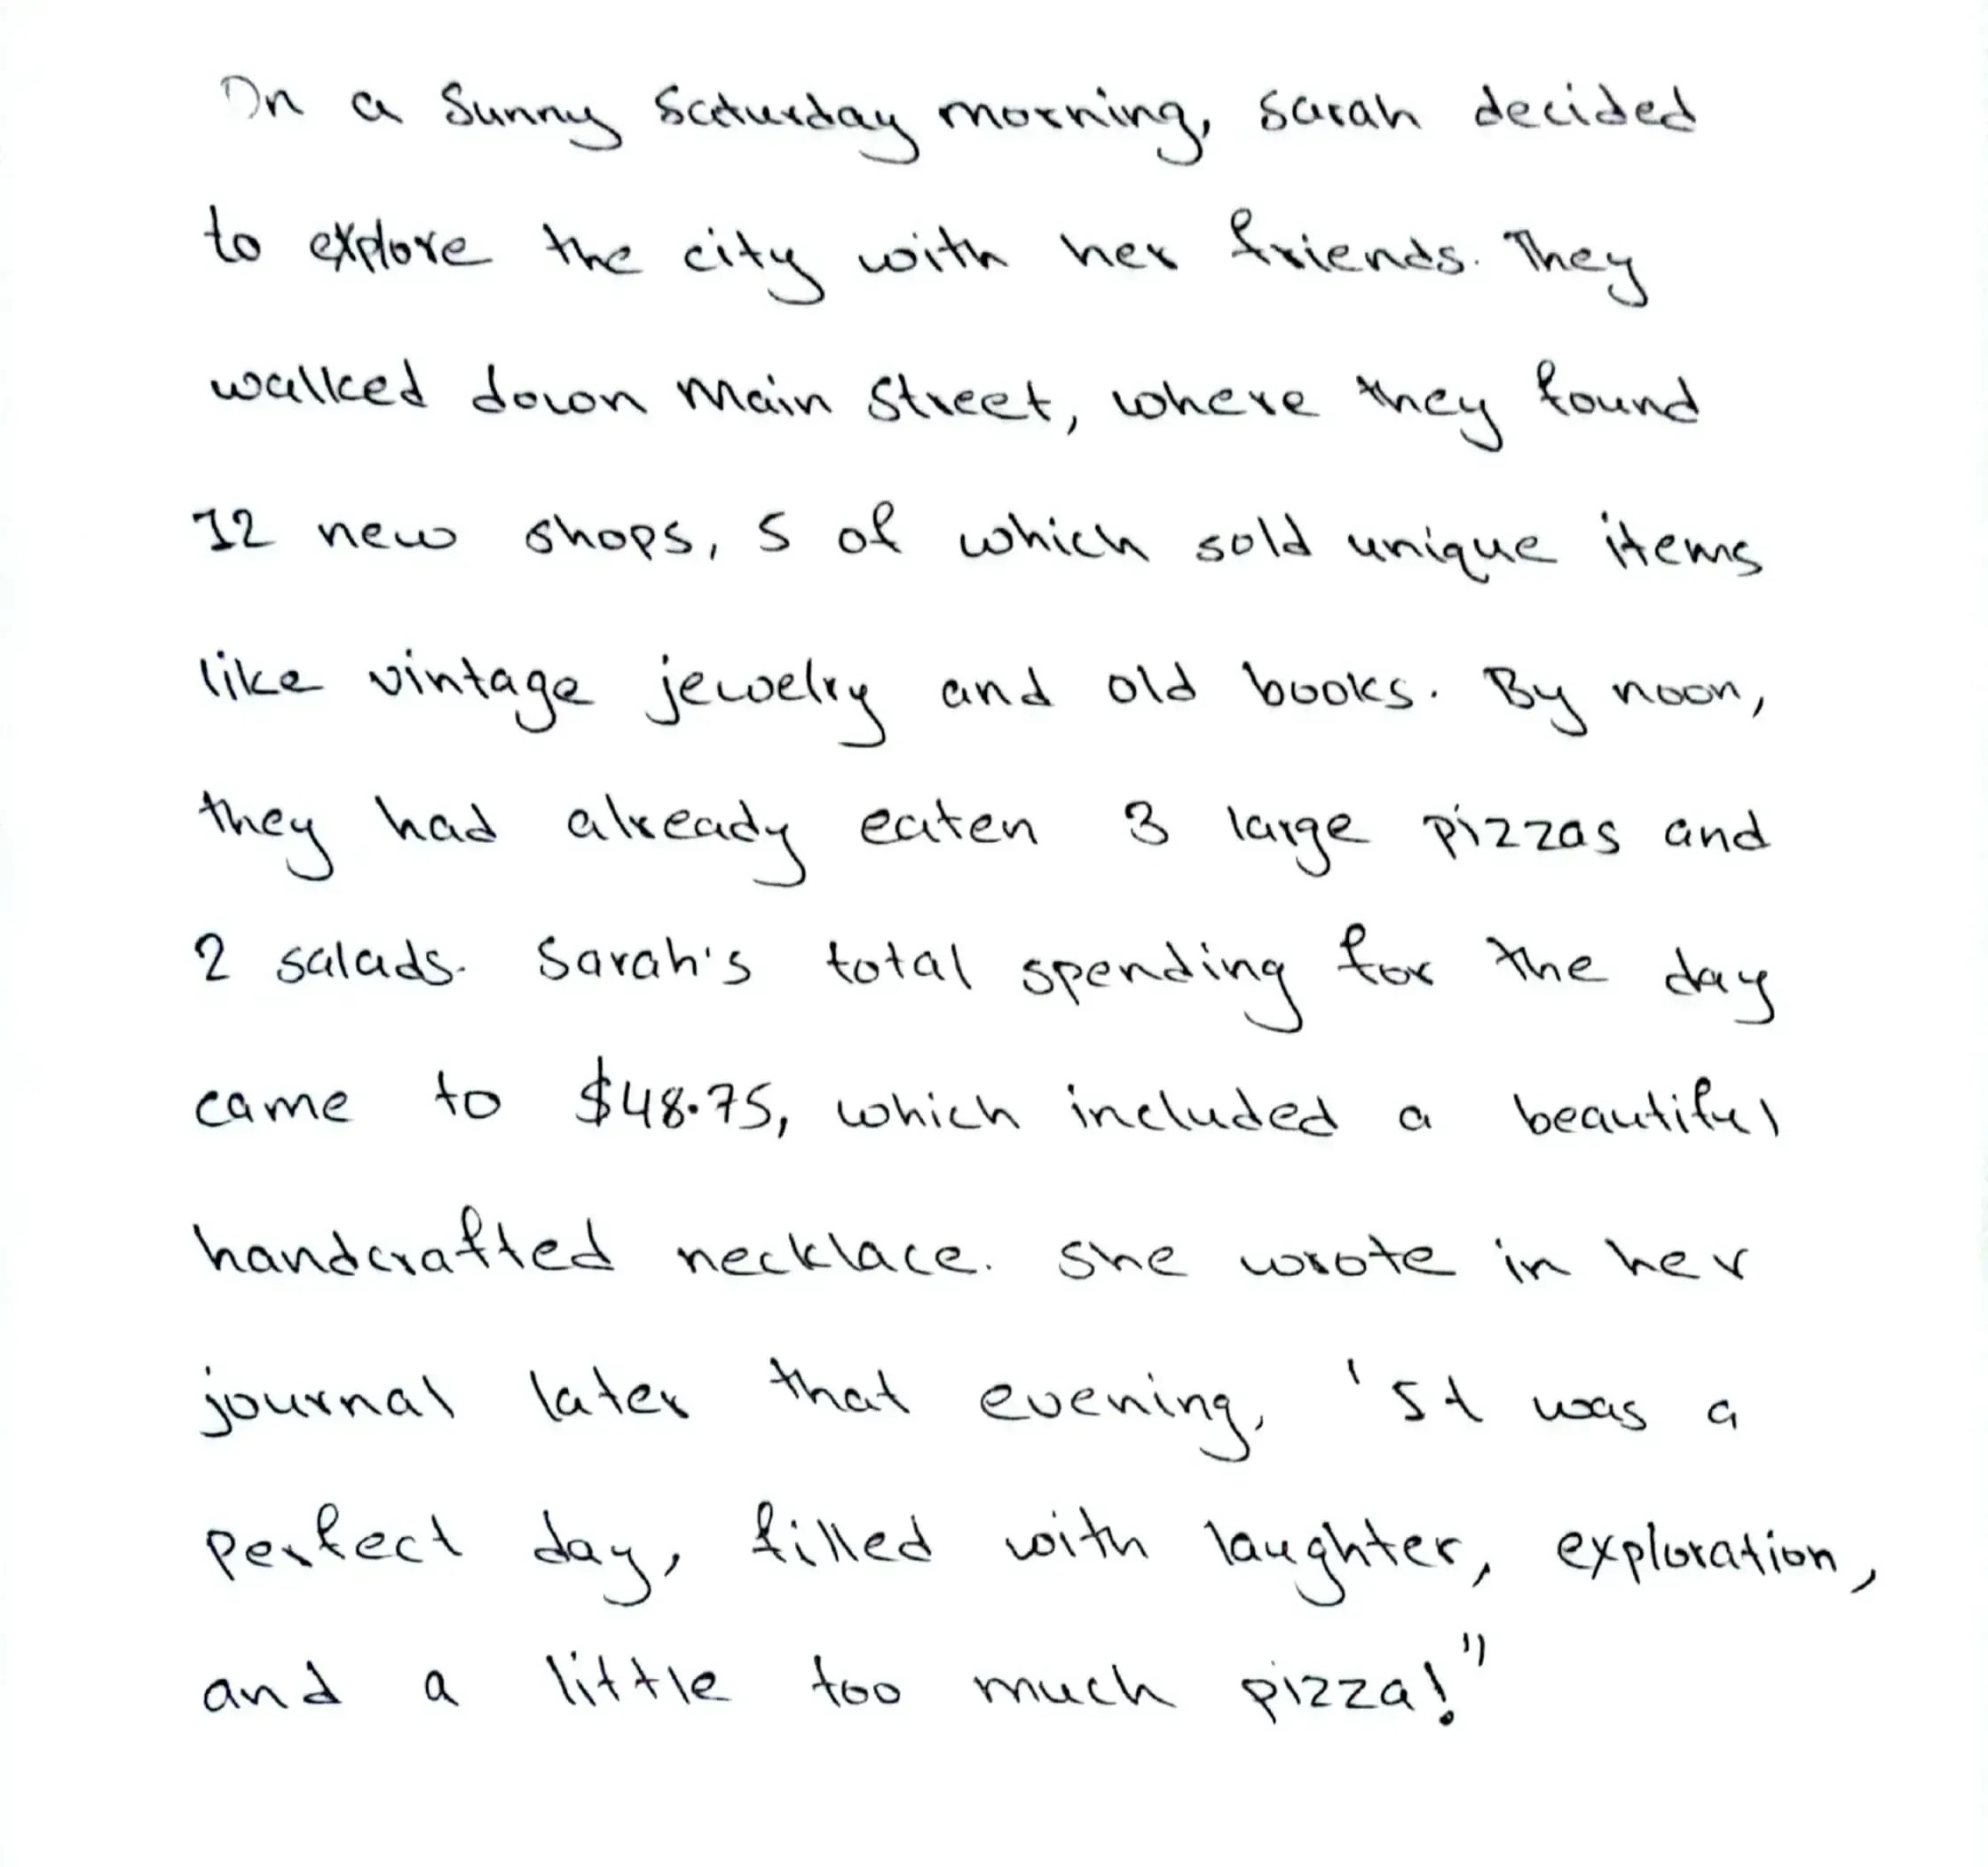 On a Sunny Saturday morning, Sarah decided
to explore the city with her friends. They
walked down Main Street, where they found
12 new shops, 5 of which sold unique items
like vintage jewelry and old books. By noon,
they had already eaten 3 large pizzas and
2 salads. Sarah's total spending for the day
came to $48.75, which included a beautiful
handcrafted necklace. She wrote in her
journal later that evening, 'It was a
perfect day, filled with laughter, exploration,
and a little too much pizza!"